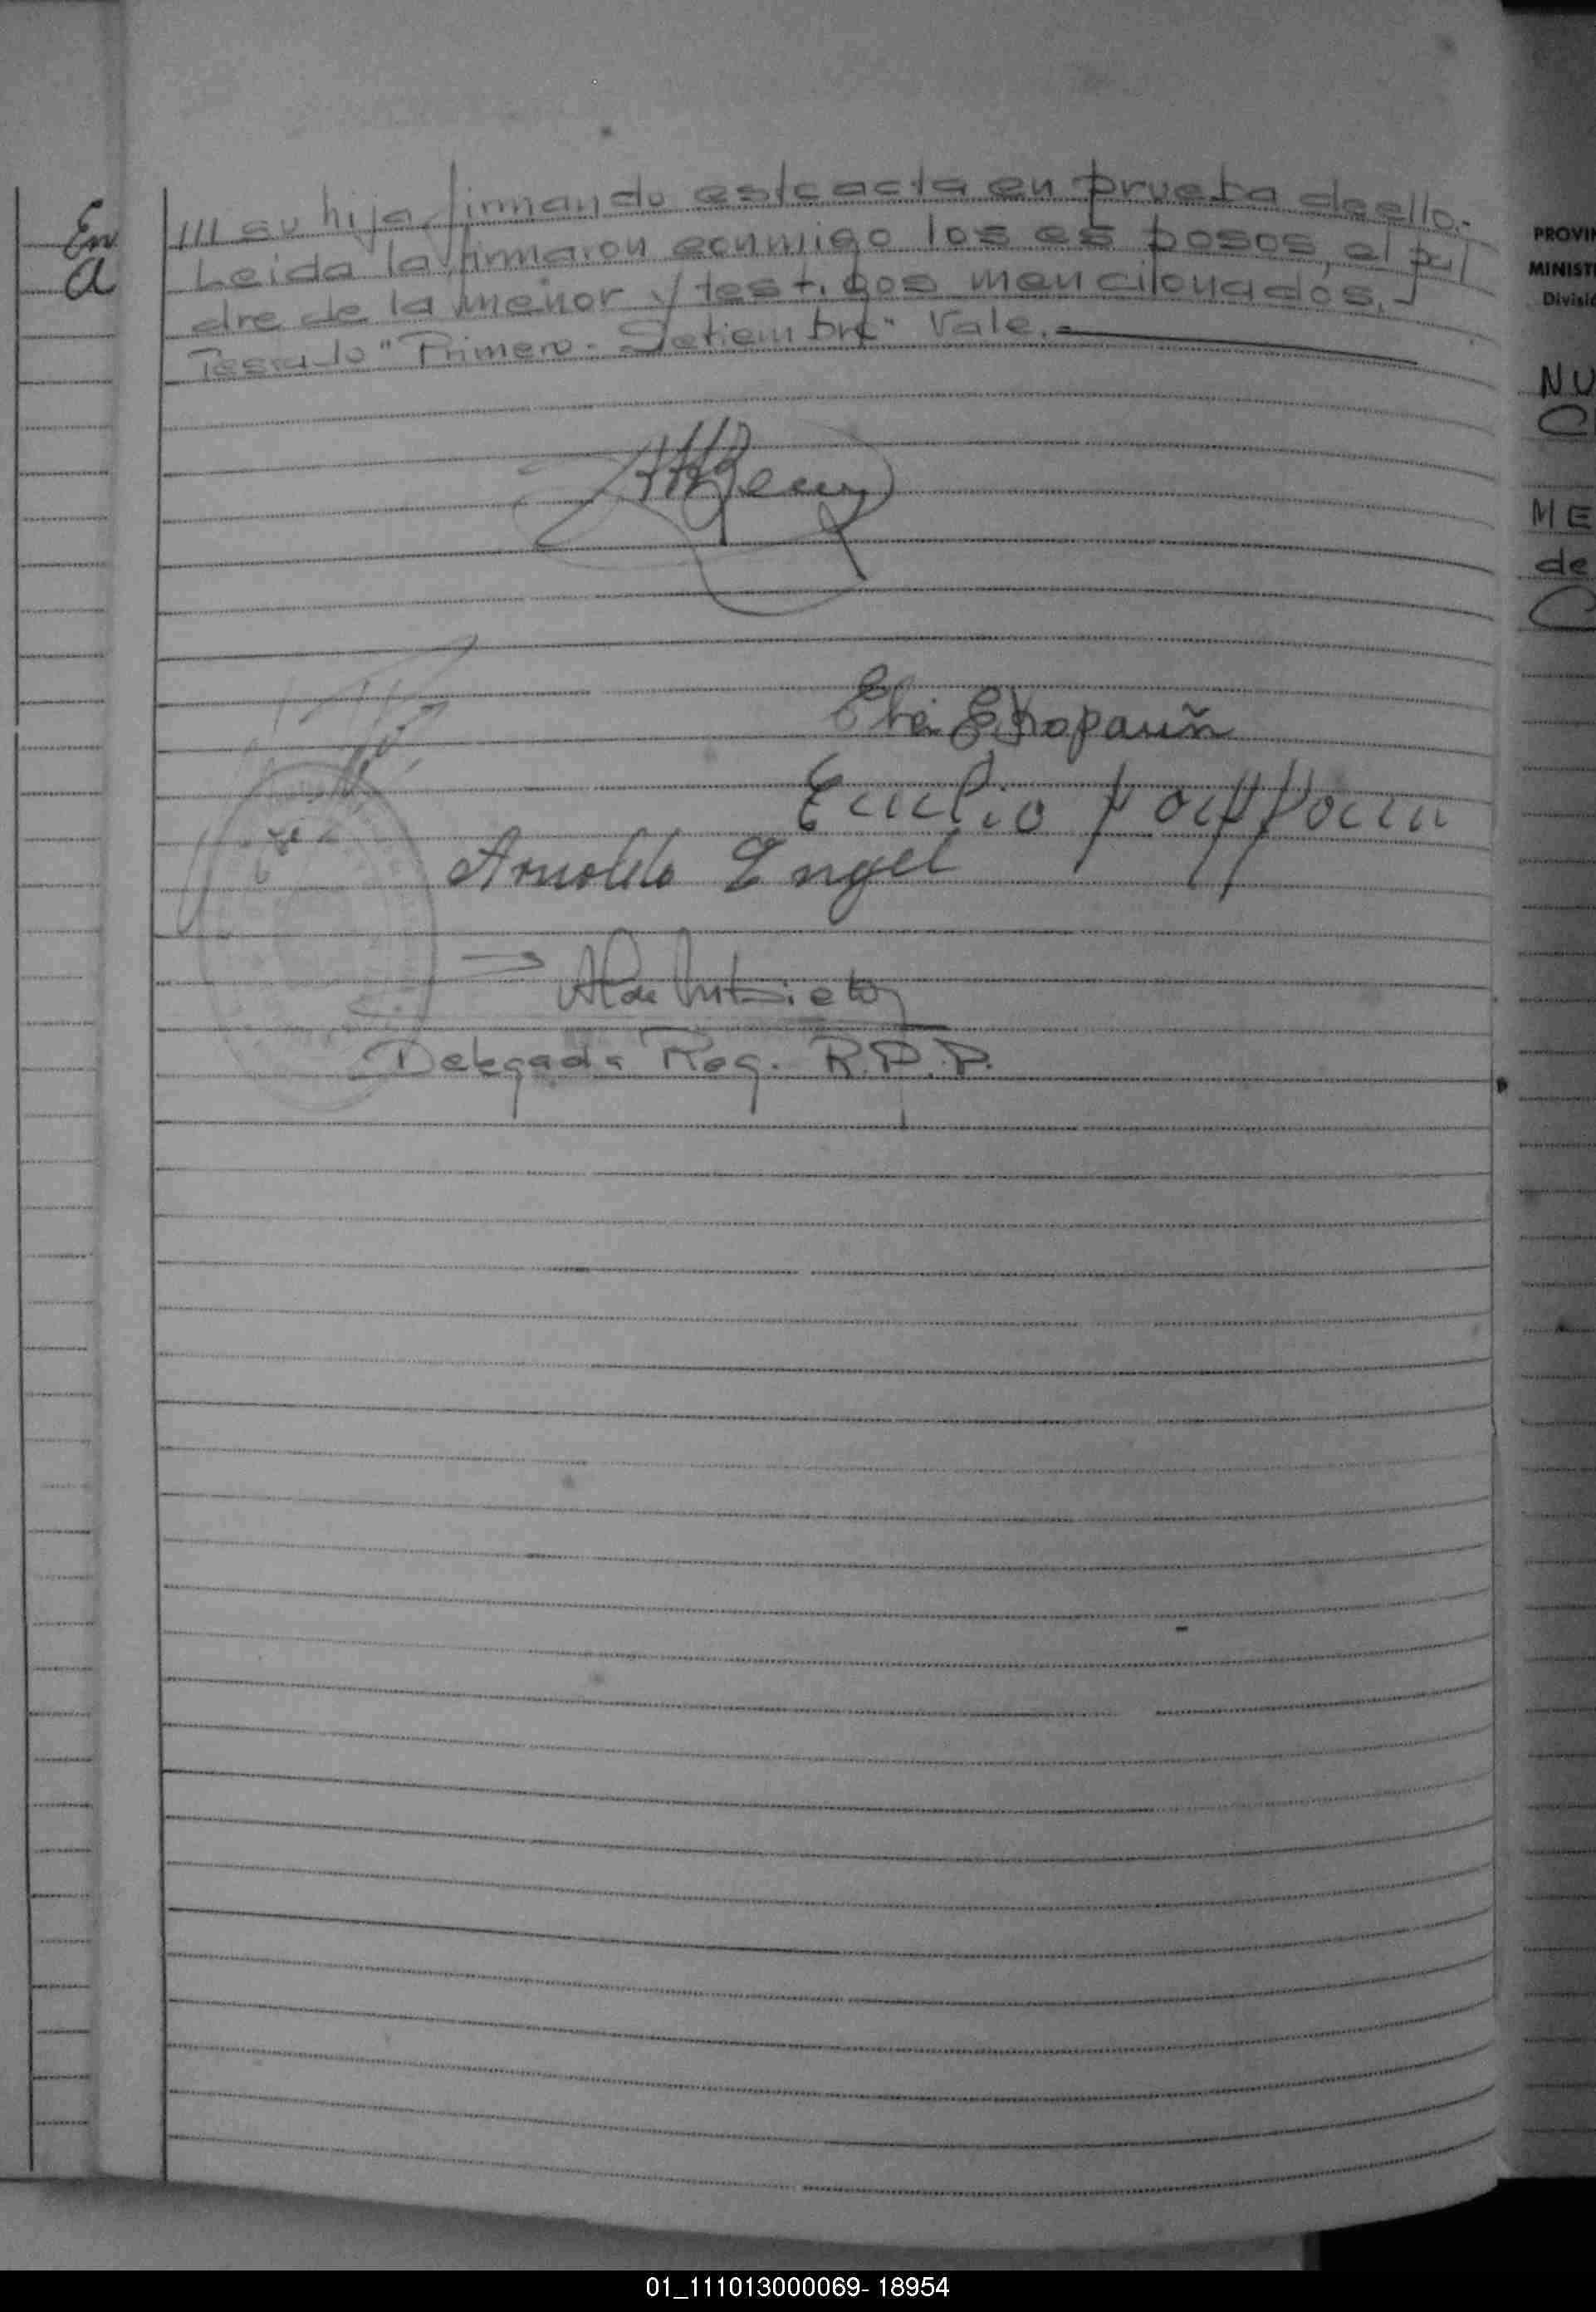 En
a
/// su hija firmando este acta en prueba de ello.-
Leida la firmaron conmigo los esposos, el pa/
dre de la menor y testigos mencilonados,
Testado "Primero - Setiembre" Vale.
Emilio
Arnoldo Engel
Delegada Reg. R.P.P.
PROVIN
MINISTE
Divisió
NU
C
ME
de
C
01_111013000069- 18954